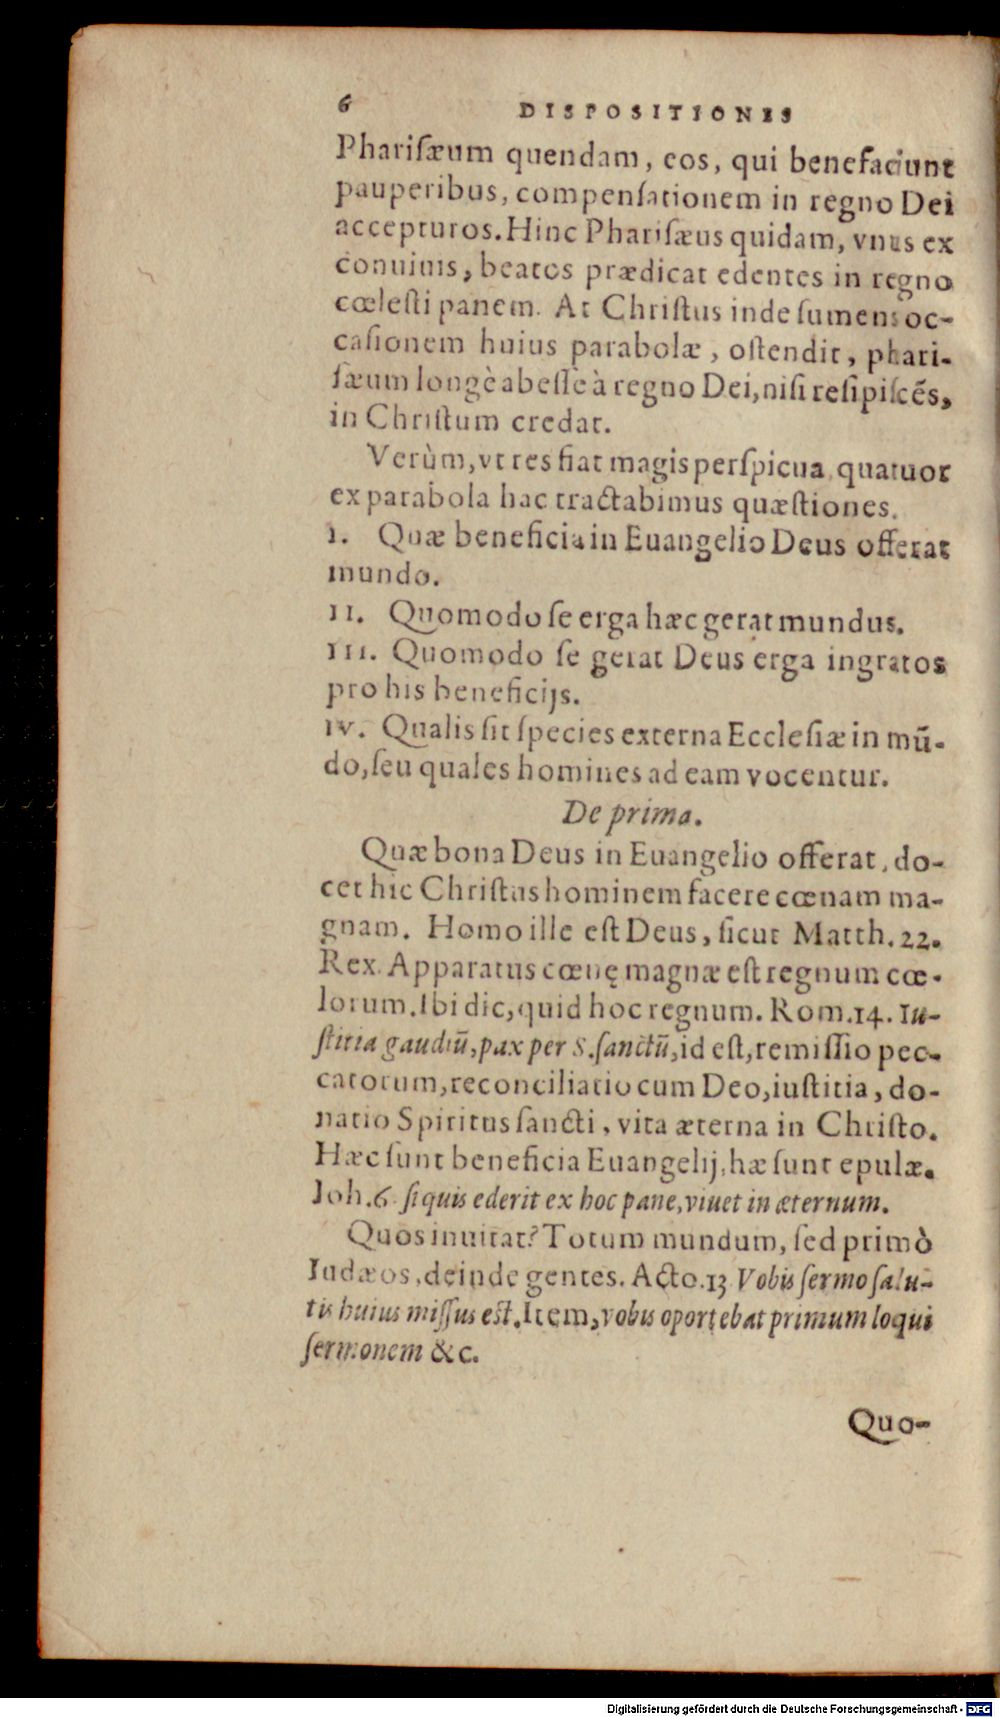 6 DISPOSITIONES
Phariſæum quendam, eos, qui benefaciunt
pauperibus, compenſationem in regno Dei
accepturos. Hinc Phariſæus quidam, vnus ex
conuiuis, beatos prædicat edentes in regno
cœleſti panem. At Chriſtus inde ſumens oc-
caſionem huius parabolæ, oſtendit, phari-
ſæum longè abeſſe à regno Dei, niſi reſipiſcẽs,
in Chriſtum credat.
Verùm, vt res fiat magis perſpicua, quatuor
ex parabola hac tractabimus quæſtiones.
I. Quæ beneficia in Euangelio Deus offerat
mundo.
II. Quomodo ſe erga hæc gerat mundus.
III. Quomodo ſe gerat Deus erga ingratos
pro his beneficijs.
IV. Qualis ſit ſpecies externa Eccleſiæ in mũ-
do, ſeu quales homines ad eam vocentur.
De prima.
Quæ bona Deus in Euangelio offerat, do-
cet hic Chriſtus hominem facere cœnam ma-
gnam. Homo ille eſt Deus, ſicut Matth. 22.
Rex. Apparatus cœnę magnæ eſt regnum cœ-
lorum. Ibi dic, quid hoc regnum. Rom. 14. Iu-
ſtitia gaudiũ, pax per S. ſanctũ, id eſt, remiſſio pec-
catorum, reconciliatio cum Deo, iuſtitia, do-
natio Spiritus ſancti, vita æterna in Chriſto.
Hæc ſunt beneficia Euangelij, hæ ſunt epulæ.
Joh. 6. ſi quis ederit ex hoc pane, viuet in æternum.
Quos inuitat? Totum mundum, ſed primò
Iudæos, deinde gentes. Acto. 13 Vobis ſermo ſalu-
tis huius miſſus eſt. Item, vobis oportebat primum loqui
ſermonem &c.
Quo-
Digitalisierung gefördert durch die Deutsche Forschungsgemeinschaft - DFG